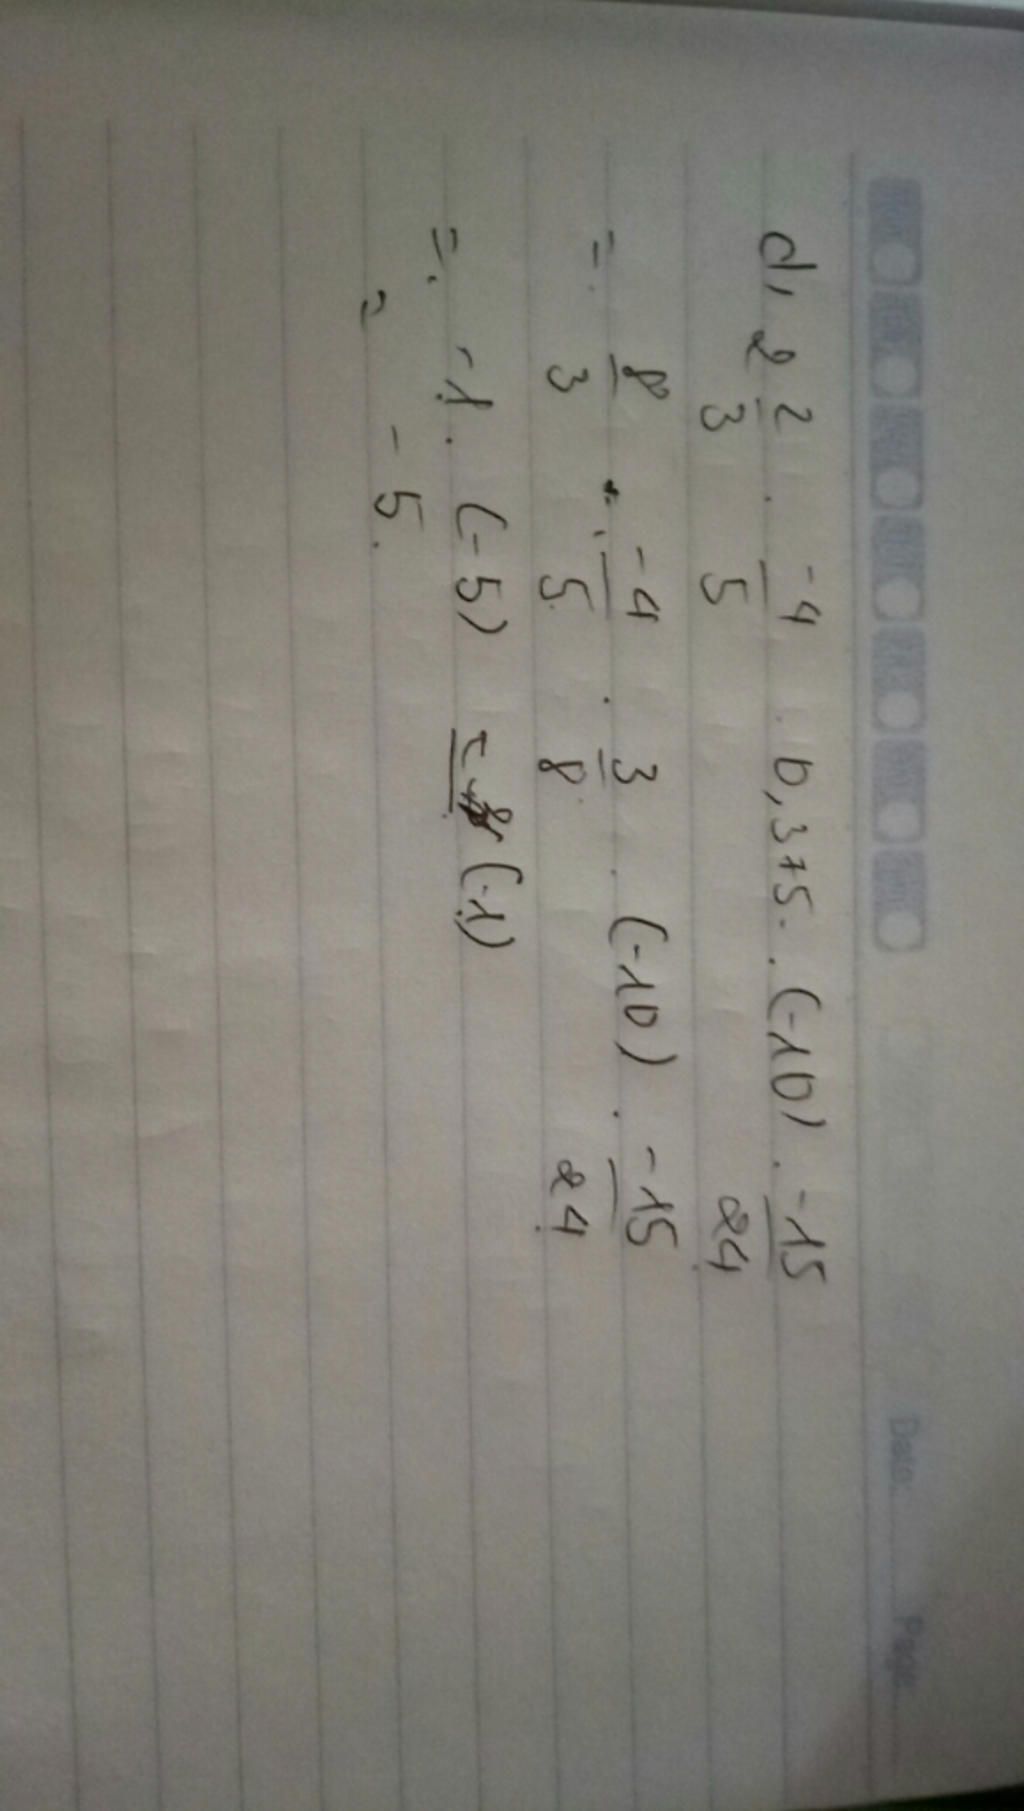 d, 2 2/3 . -4/5 . 0,375 . (-10) . -15/24
= 8/3 . -4/5 . 3/8 . (-10) . -15/24
= -1 . (-5) (-1)
= -5.
Date:
Page: